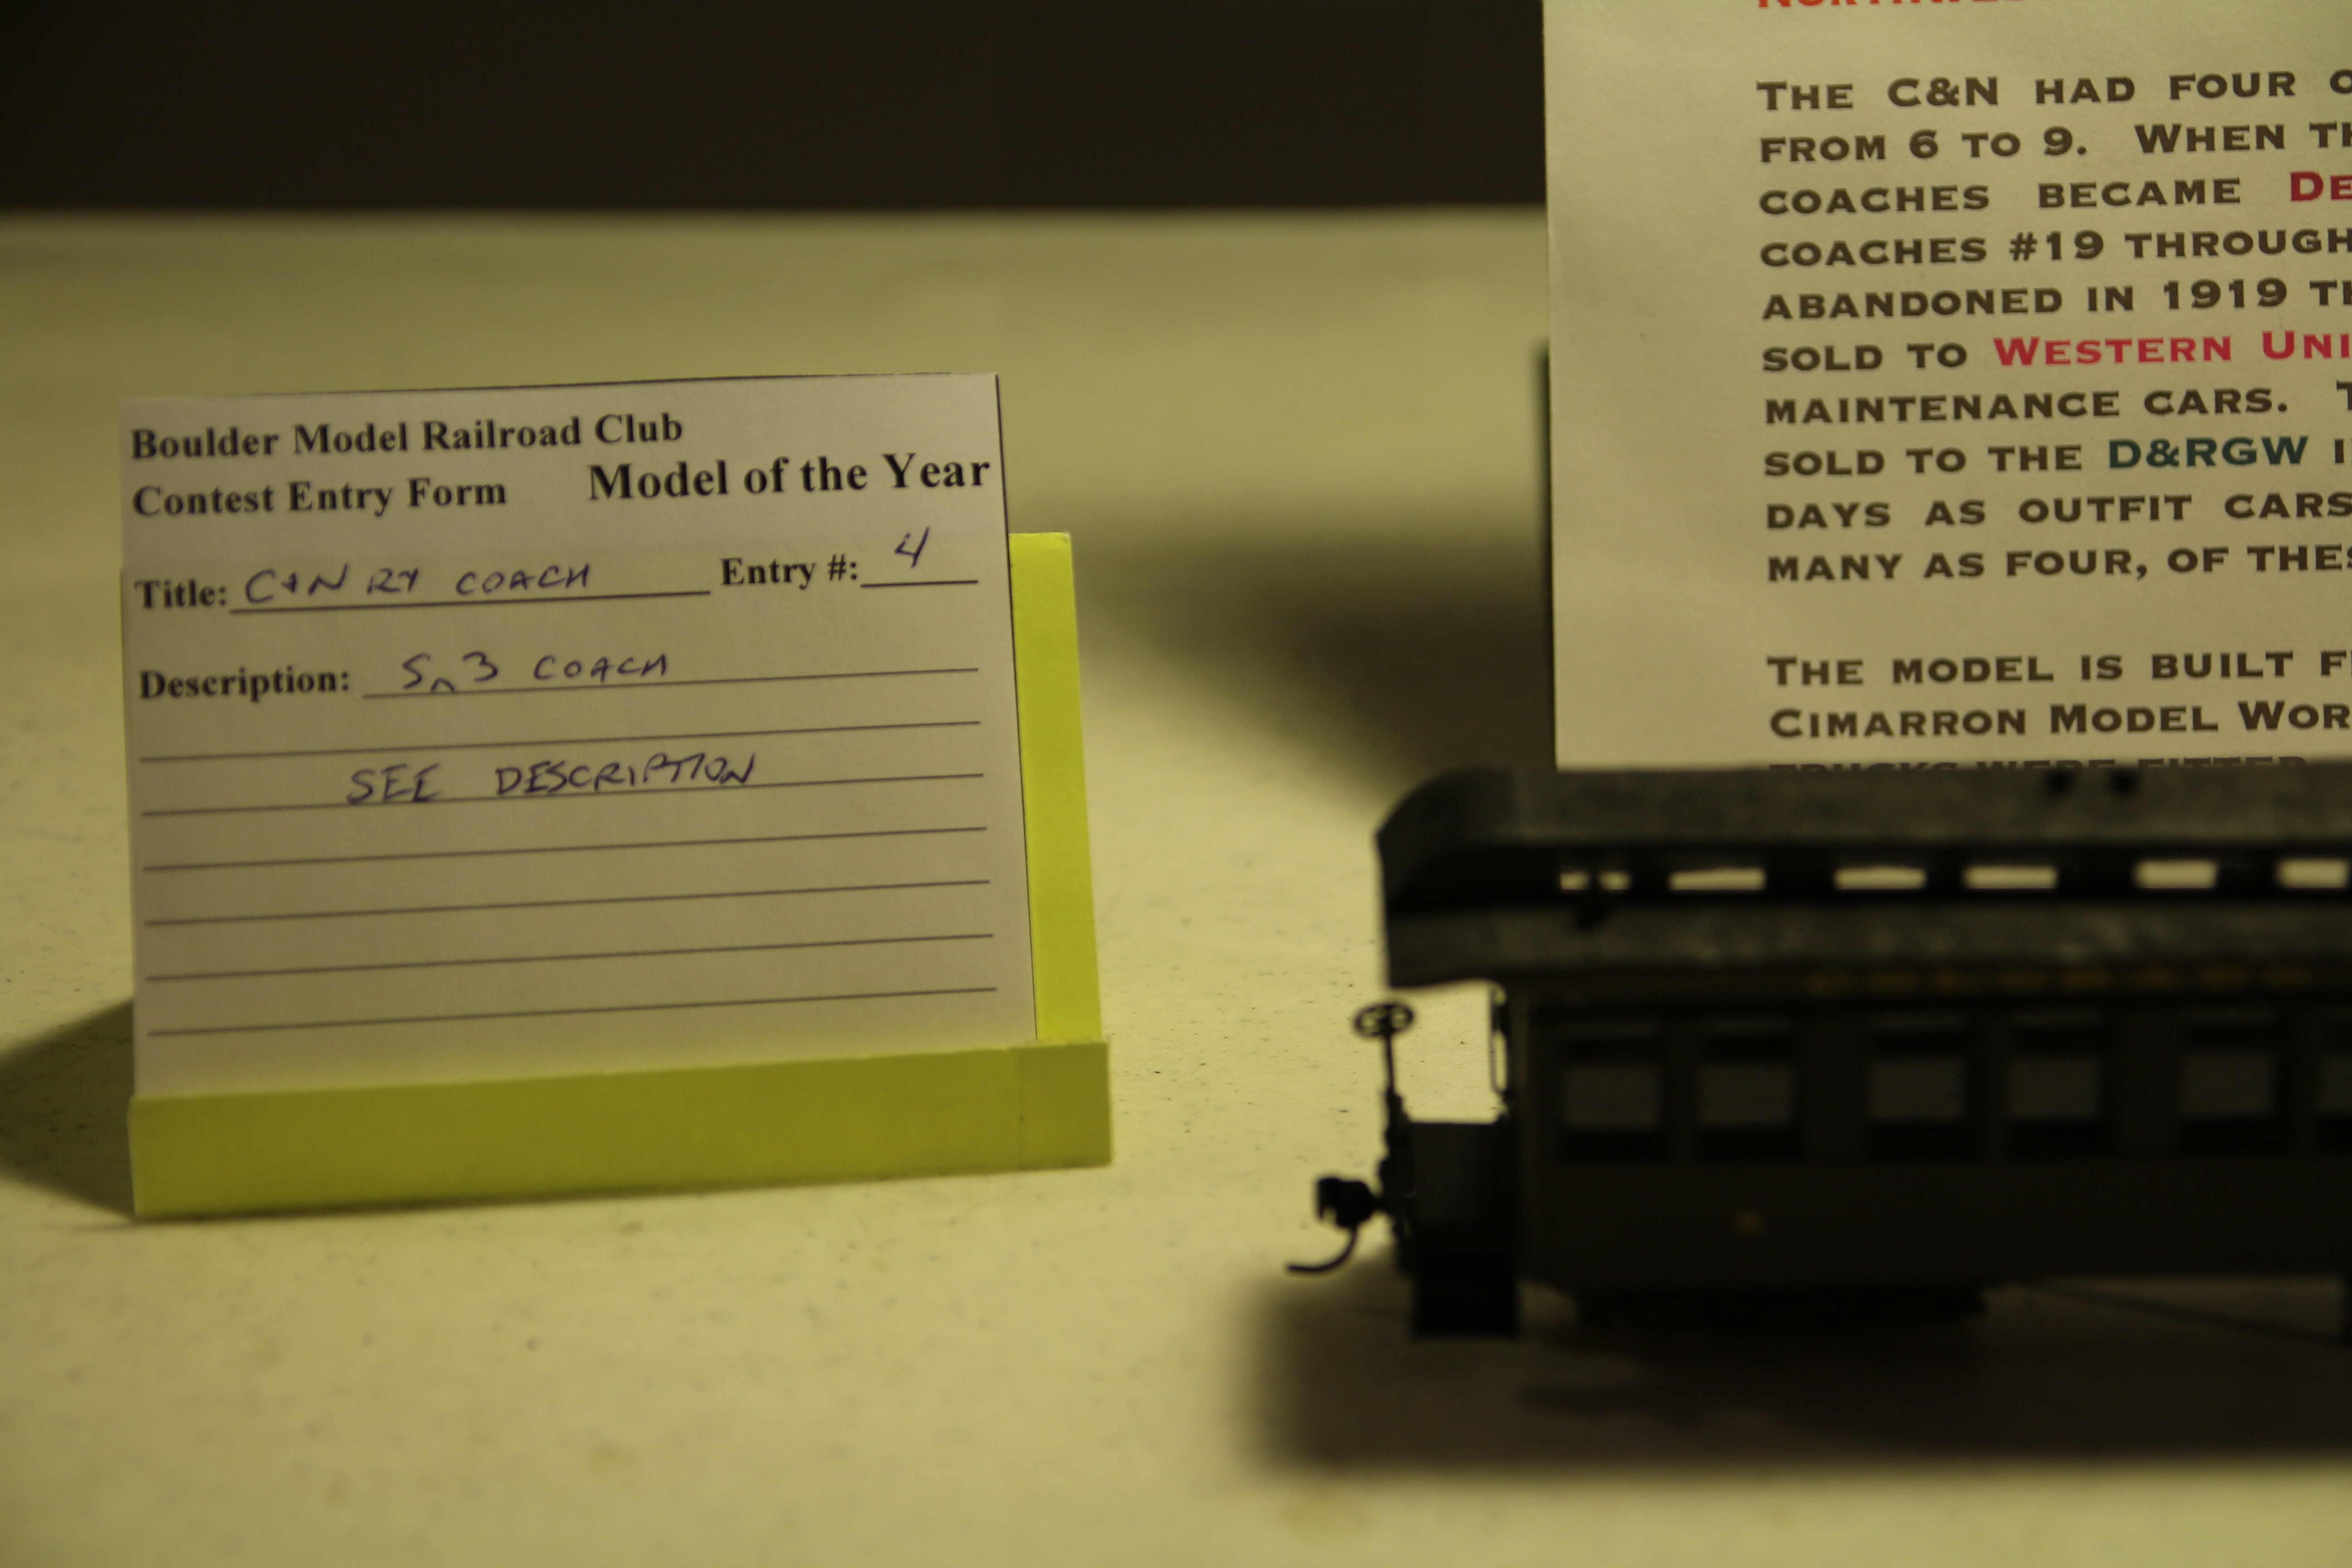 Boulder Model Railroad Club
Contest Entry Form Model of the Year
Title: C+N RY COACH Entry #: 4
Description: Sn3 COACH
SEE DESCRIPTION
THE C&N HAD FOUR
FROM 6 TO 9. WHEN
COACHES BECAME
COACHES #19 THROUGH
ABANDONED IN 1919
SOLD TO WESTERN UNI
MAINTENANCE CARS.
SOLD TO THE D&RGW
DAYS AS OUTFIT CARS
MANY AS FOUR, OF THES
THE MODEL IS BUILT
CIMARRON MODEL WOR
TRUCKS WERE FITTED